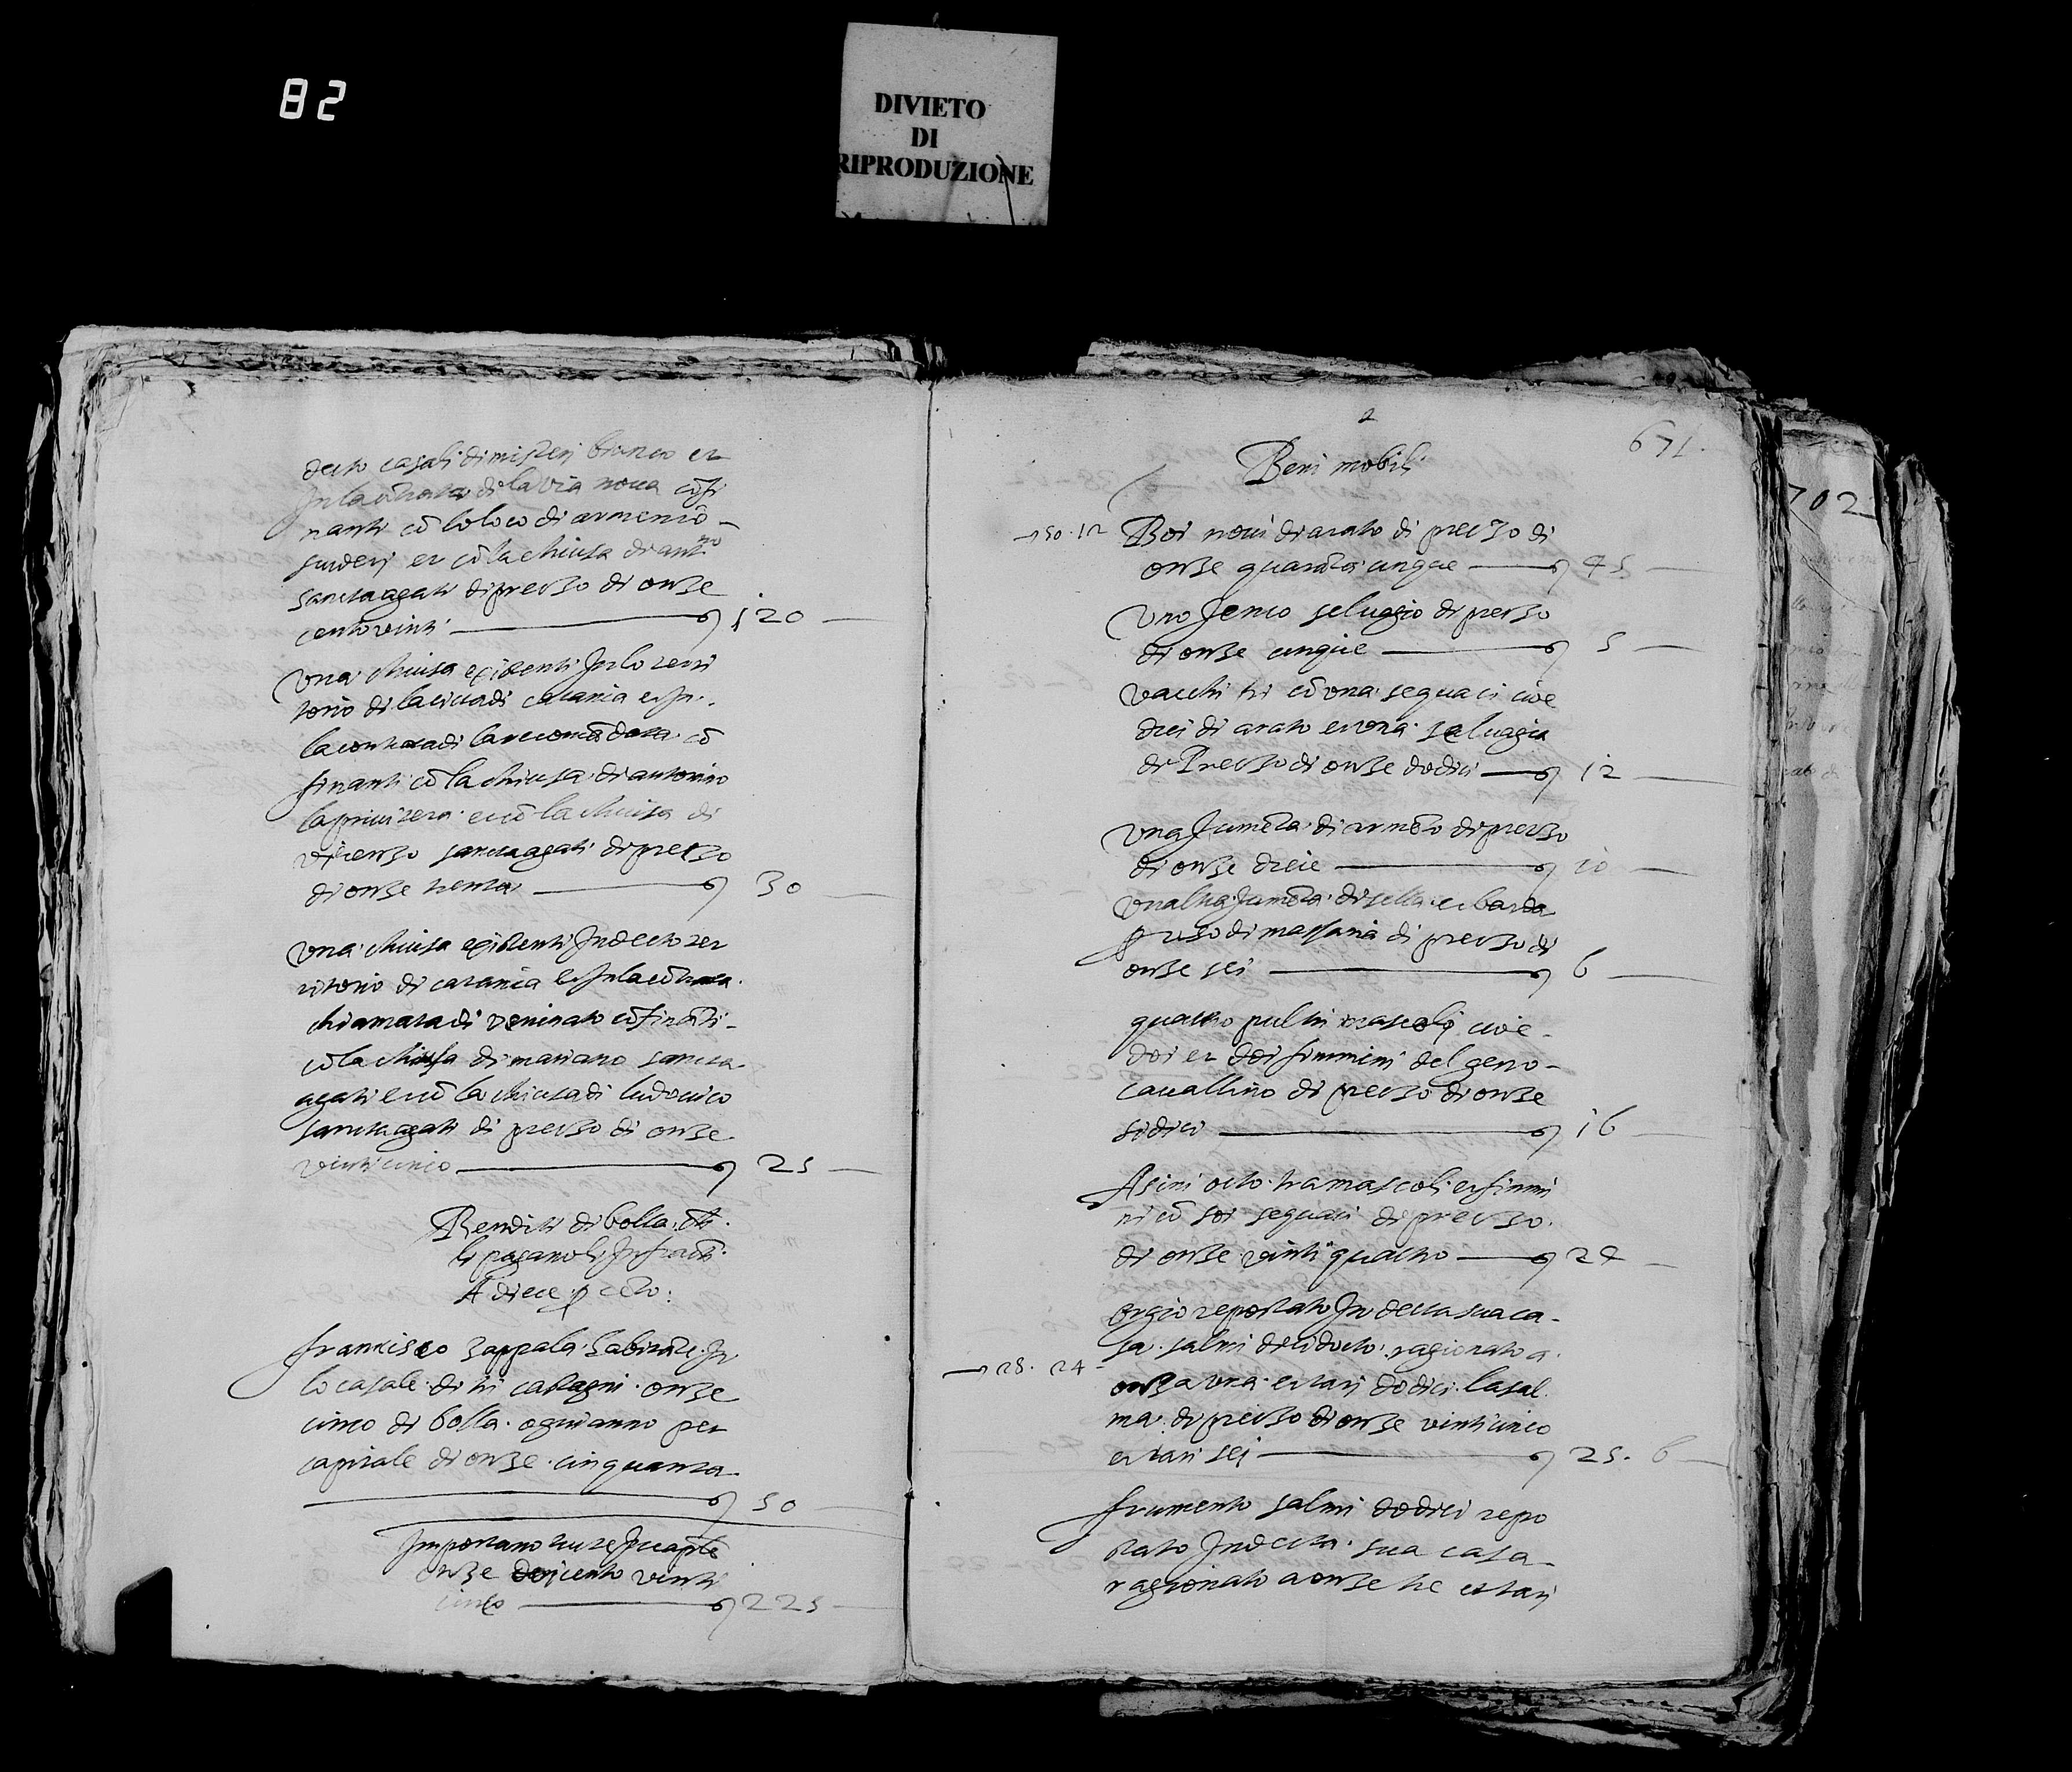 82
DIVIETO
DI
RIPRODUZIONE
decto casali di misteri bianco et
In la cõtrata di la via nova cõfi
nanti cõ lo loco di armenio
et cõ la chiusa di ant.no
sanctaagati di prezzo di onze
cento vinti 120
Una chiusa existenti In lo terri
torio di la cita di catania et In
la contrata di la recomãdata cõ
finanti cõ la chiusa di antonino
la privitera et cõ la chiusa di
vicenzo sanctaagati di prezzo
di onze trenta 30
Una chiusa existenti In decto ter
ritorio di catania et In la cõtrata
chiamata di cõfinãti
cõ la chiusa di mariano sancta
agati et cõ la chiusa di ludovico
sanctaagati di prezzo di onze
vinticinco 25
Renditi di bolla ch
li pagano li Infracti
A diece p cẽto:
francisco zappala habitãte In
lo casale di tri castagni onze
cinco di bolla ogni anno per
capitale di onze cinquanta
50
Importano tutte
onze doicento vinti
cinco 225
671.
702
Beni mobili
50.12
Boi novi di arato di prezzo di
onze quarãta cinque 45
Uno Jenco selvaggio di prezzo
di onze cinque 5
Vacchi tri cõ una sequaci cioe
doi di arato et una selvaggia
di Prezzo di onze dodici 12
Una Jumẽta di armẽto di prezzo
di onze diece 10
Un altra Jumẽta di sella et barda
p uso di massaria di prezzo di
onze sei 6
quattro pultri mascoli cioe
doi et doi fimmini del geno
cavallino di prezzo di onze
sidici 16
Asini octo tra mascoli et fimmi
ni cõ soi sequaci di prezzo
di onze vinti quattro 24
orgio repostato In decta sua ca
sa salmi decidocto ragionato a
28. 24
onza una et tari dodici la sal
ma di prezzo di onze vinticinco
et tari sei 25. 6
frumento salmi dodici repo
stato In decta sua casa
ragionato a onze tre et tari